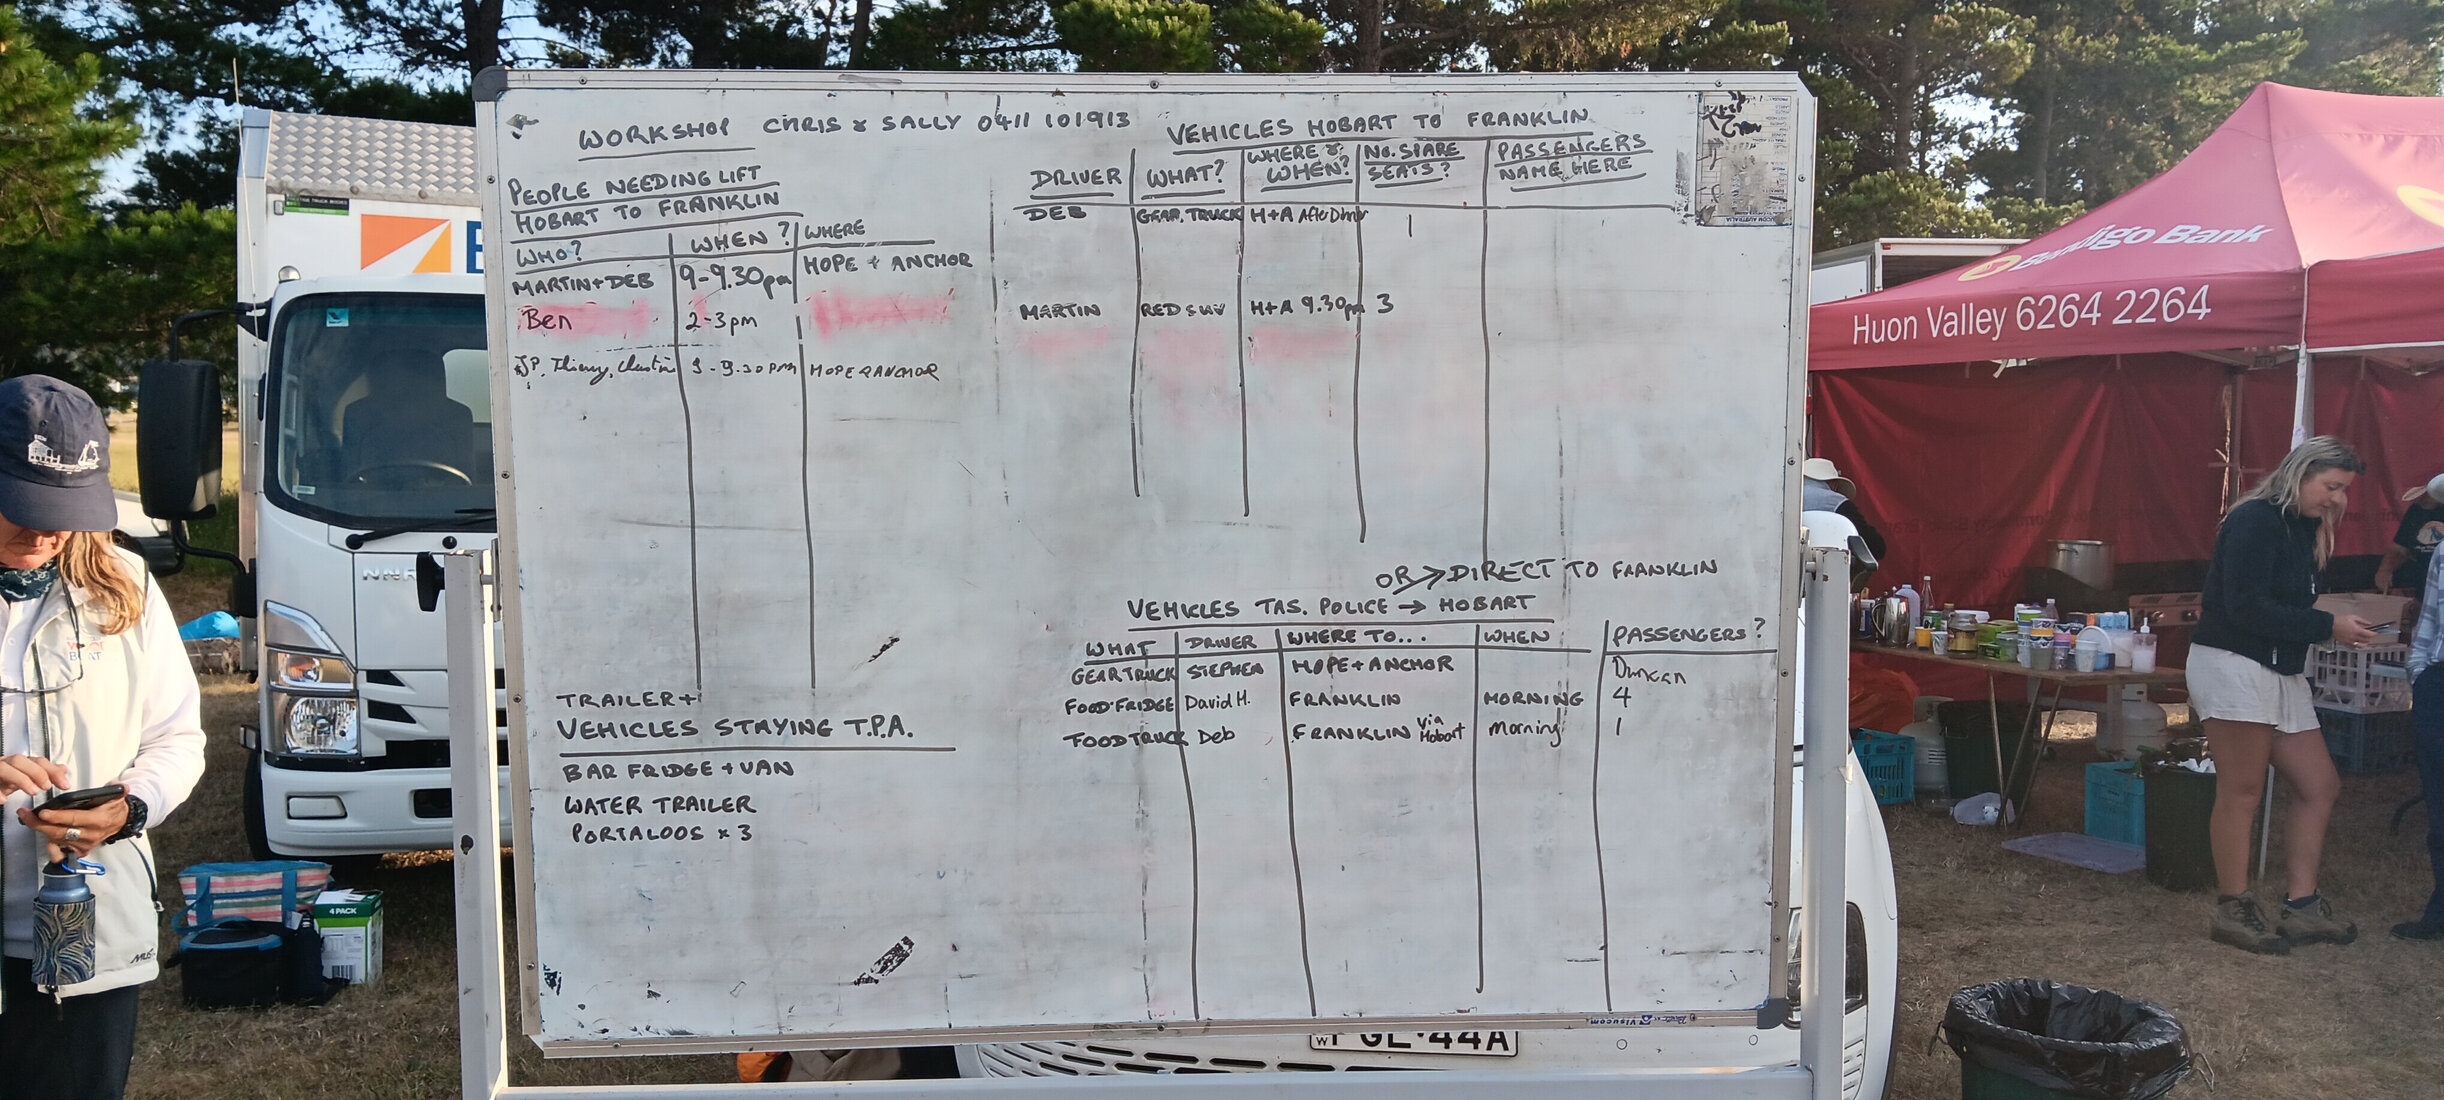 WORKSHOP CHRIS & SALLY 0411 101913
PEOPLE NEEDING LIFT
HOBART TO FRANKLIN
WHO? WHEN? WHERE
MARTIN + DEB 9-9.30pm HOPE + ANCHOR
Ben 2-3pm
JP, Thierry, 9-9.30PM HOPE & ANCHOR
TRAILER +
VEHICLES STAYING T.P.A.
BAR FRIDGE + VAN
WATER TRAILER
PORTALOOS x 3
VEHICLES HOBART TO FRANKLIN
DRIVER WHAT? WHERE & WHEN? NO. SPARE SEATS? PASSENGERS NAME HERE
DEB GEAR, TRUCK H+A After Dinner 1
MARTIN RED SUV H+A 9.30pm 3
OR → DIRECT TO FRANKLIN
VEHICLES TAS. POLICE → HOBART
WHAT DRIVER WHERE TO... WHEN PASSENGERS?
GEAR TRUCK STEPHEN HOPE + ANCHOR Duncan
FOOD FRIDGE David H. FRANKLIN MORNING 4
FOOD TRUCK Deb FRANKLIN via Hobart Morning 1
Bendigo Bank
Huon Valley 6264 2264
4 PACK
GL·44A